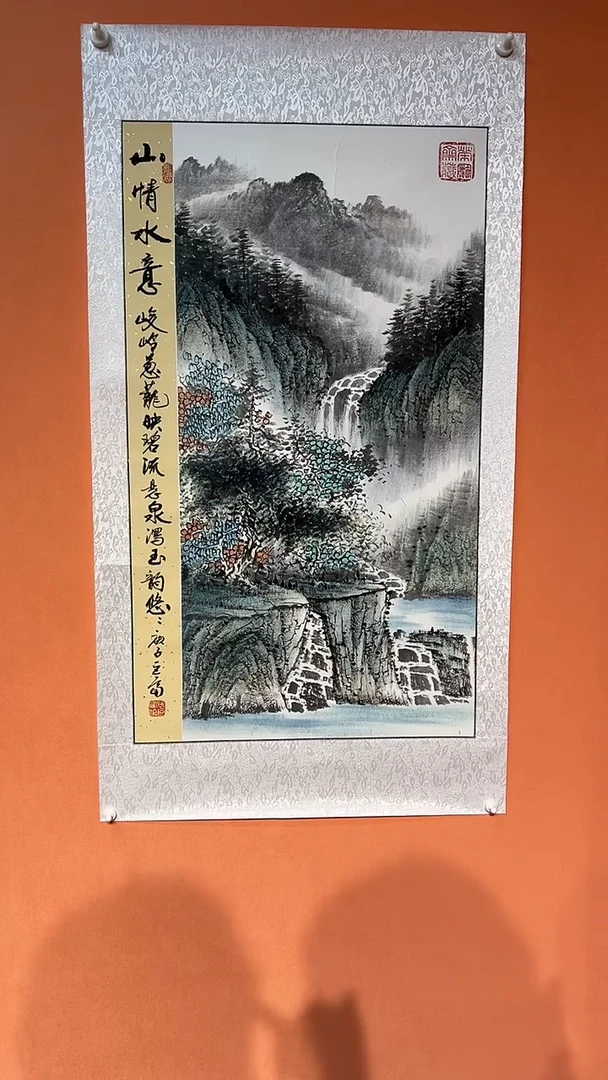 山情水意 峻岭葱茏映碧流 悬泉泻玉韵悠悠 庚子